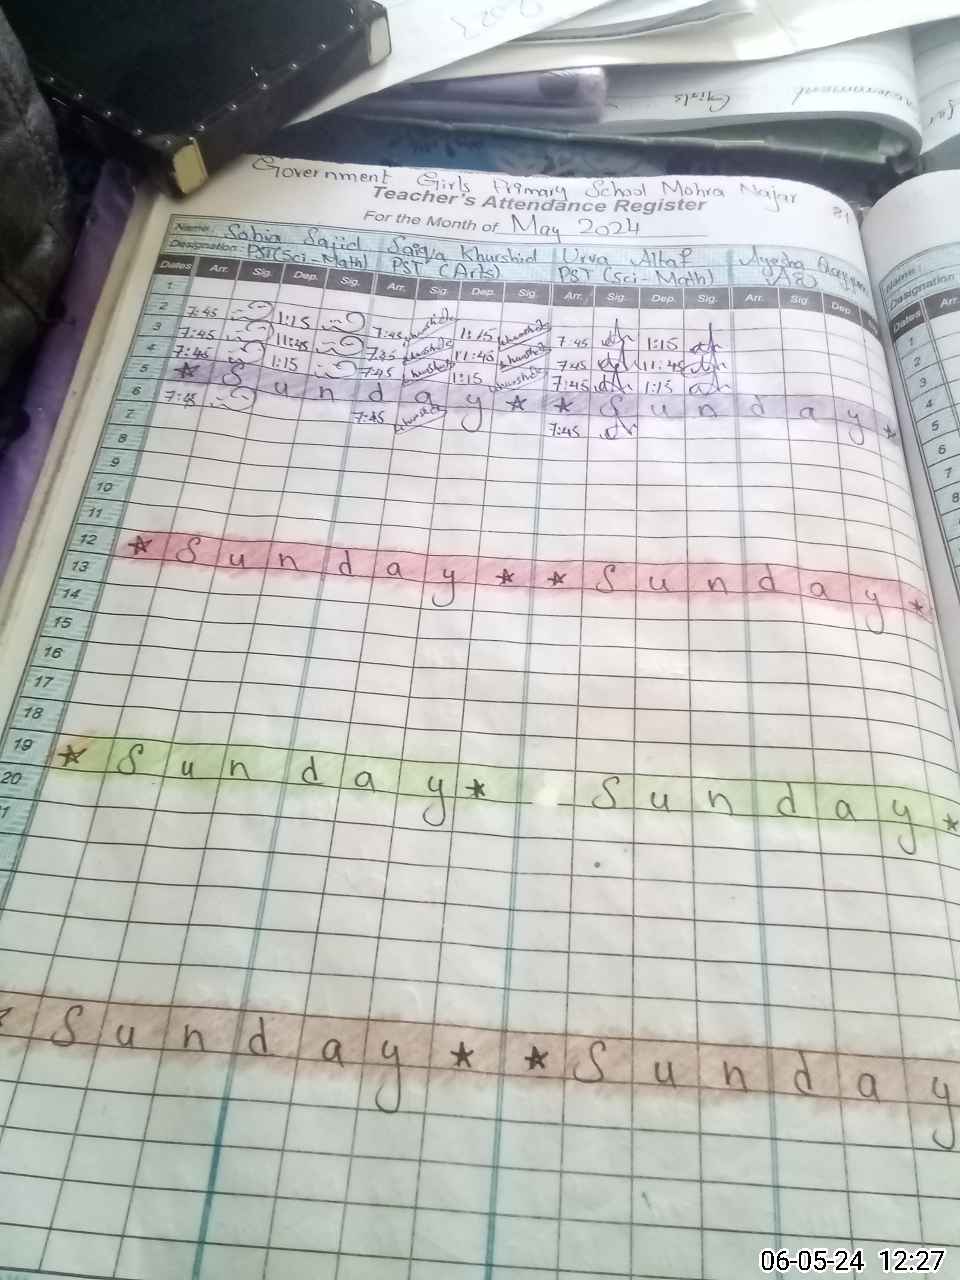 Girls
Government Girls Primary School Mohra Najar
Teacher's Attendance Register
For the Month of May 2024
Name: Sobia Sajid Saiqa Khurshid Urva Altaf Ayesha
Designation: PST (Sci-Math) PST (Arts) PST (Sci-Math)
Dates Arr. Sig. Dep. Sig. Arr. Sig. Dep. Sig. Arr. Sig. Dep. Sig. Arr. Sig. Dep.
1
2 7:45 1:15 7:45 1:15 7:45 1:15
3 7:45 11:45 7:45 11:45 7:45 11:45
4 7:45 1:15 7:45 1:15 7:45 1:15
5 ★ Sunday ★ ★ Sunday ★
6 7:45 7:45 7:45
7
8
9
10
11
12 ★ Sunday ★ ★ Sunday ★
13
14
15
16
17
18
19 ★ Sunday ★ Sunday ★
20
Sunday ★ ★ Sunday
Name:
Designation
Dates Arr.
1
2
3
4
5
6
7
8
06-05-24 12:27